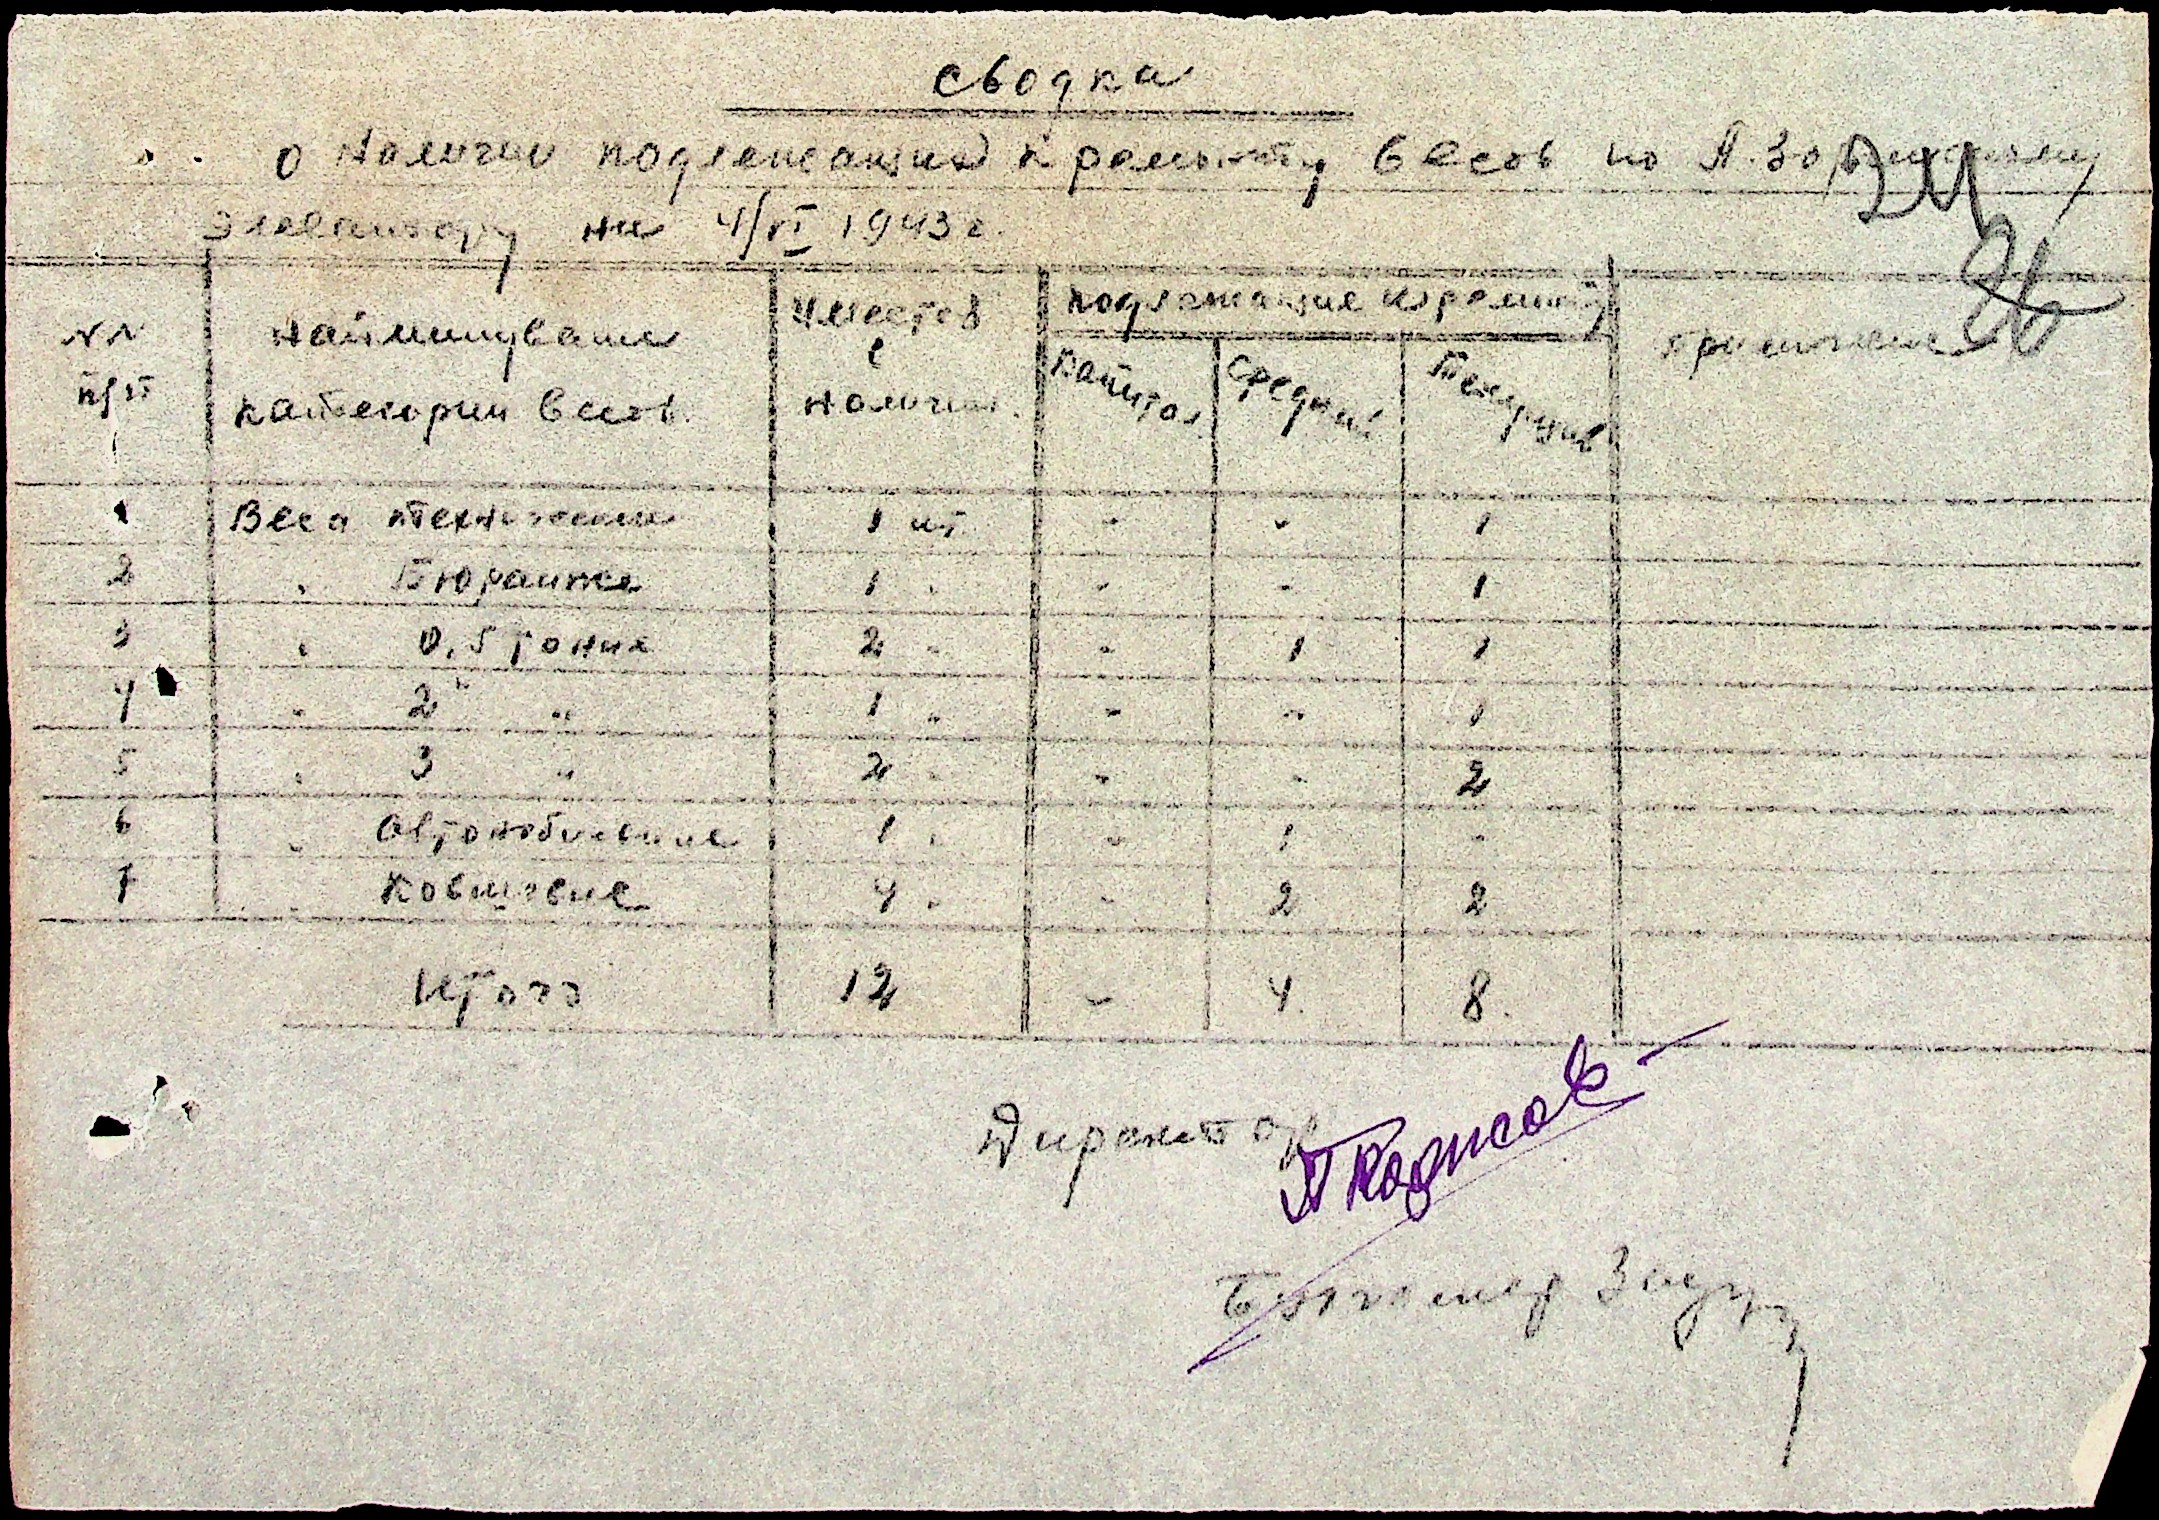 Сводка
о наличии подлежащих к ремонту весов по
Элеватору на 4/VI 1943 г.
24
26
NN п/п | Категории весов | Имеется в наличии | Подлежащие к ремонту | Примечание
Капитал. | Средний | Текущий
1 Веса технические 1 шт - - 1
2 " 1 " - - 1
3 " 0,5 тоние 2 " - 1 1
4 " 2 " " 1 " - - 1
5 " 3 " 2 " - - 2
6 " Автомобильные 1 " - 1 -
7 " Ковшевые 4 " - 2 2
Итого 12 - 4. 8.
Директор